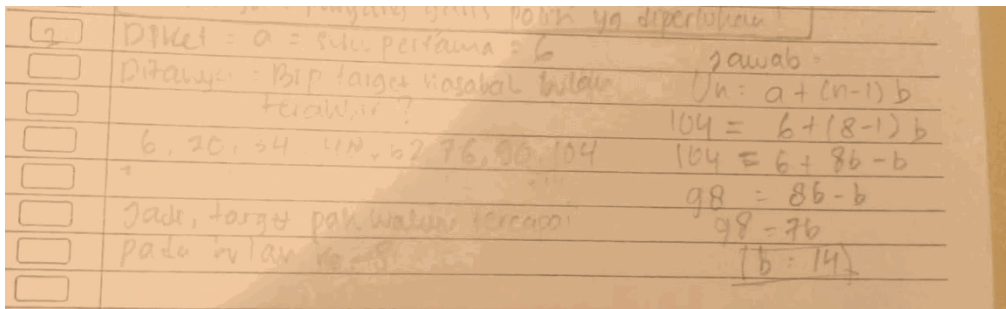 yg diperlukan
2. Diket : a = suku pertama = 6
Ditanya : Brp target nasabah bulan
terakhir ?
6, 20, 34 48, 62 76, 90, 104
Jadi, target pak wawan tercapai
pada bulan ke-8
Jawab :
Un = a + (n-1) b
104 = 6 + (8-1) b
104 = 6 + 8b - b
98 = 8b - b
98 = 7b
b = 14